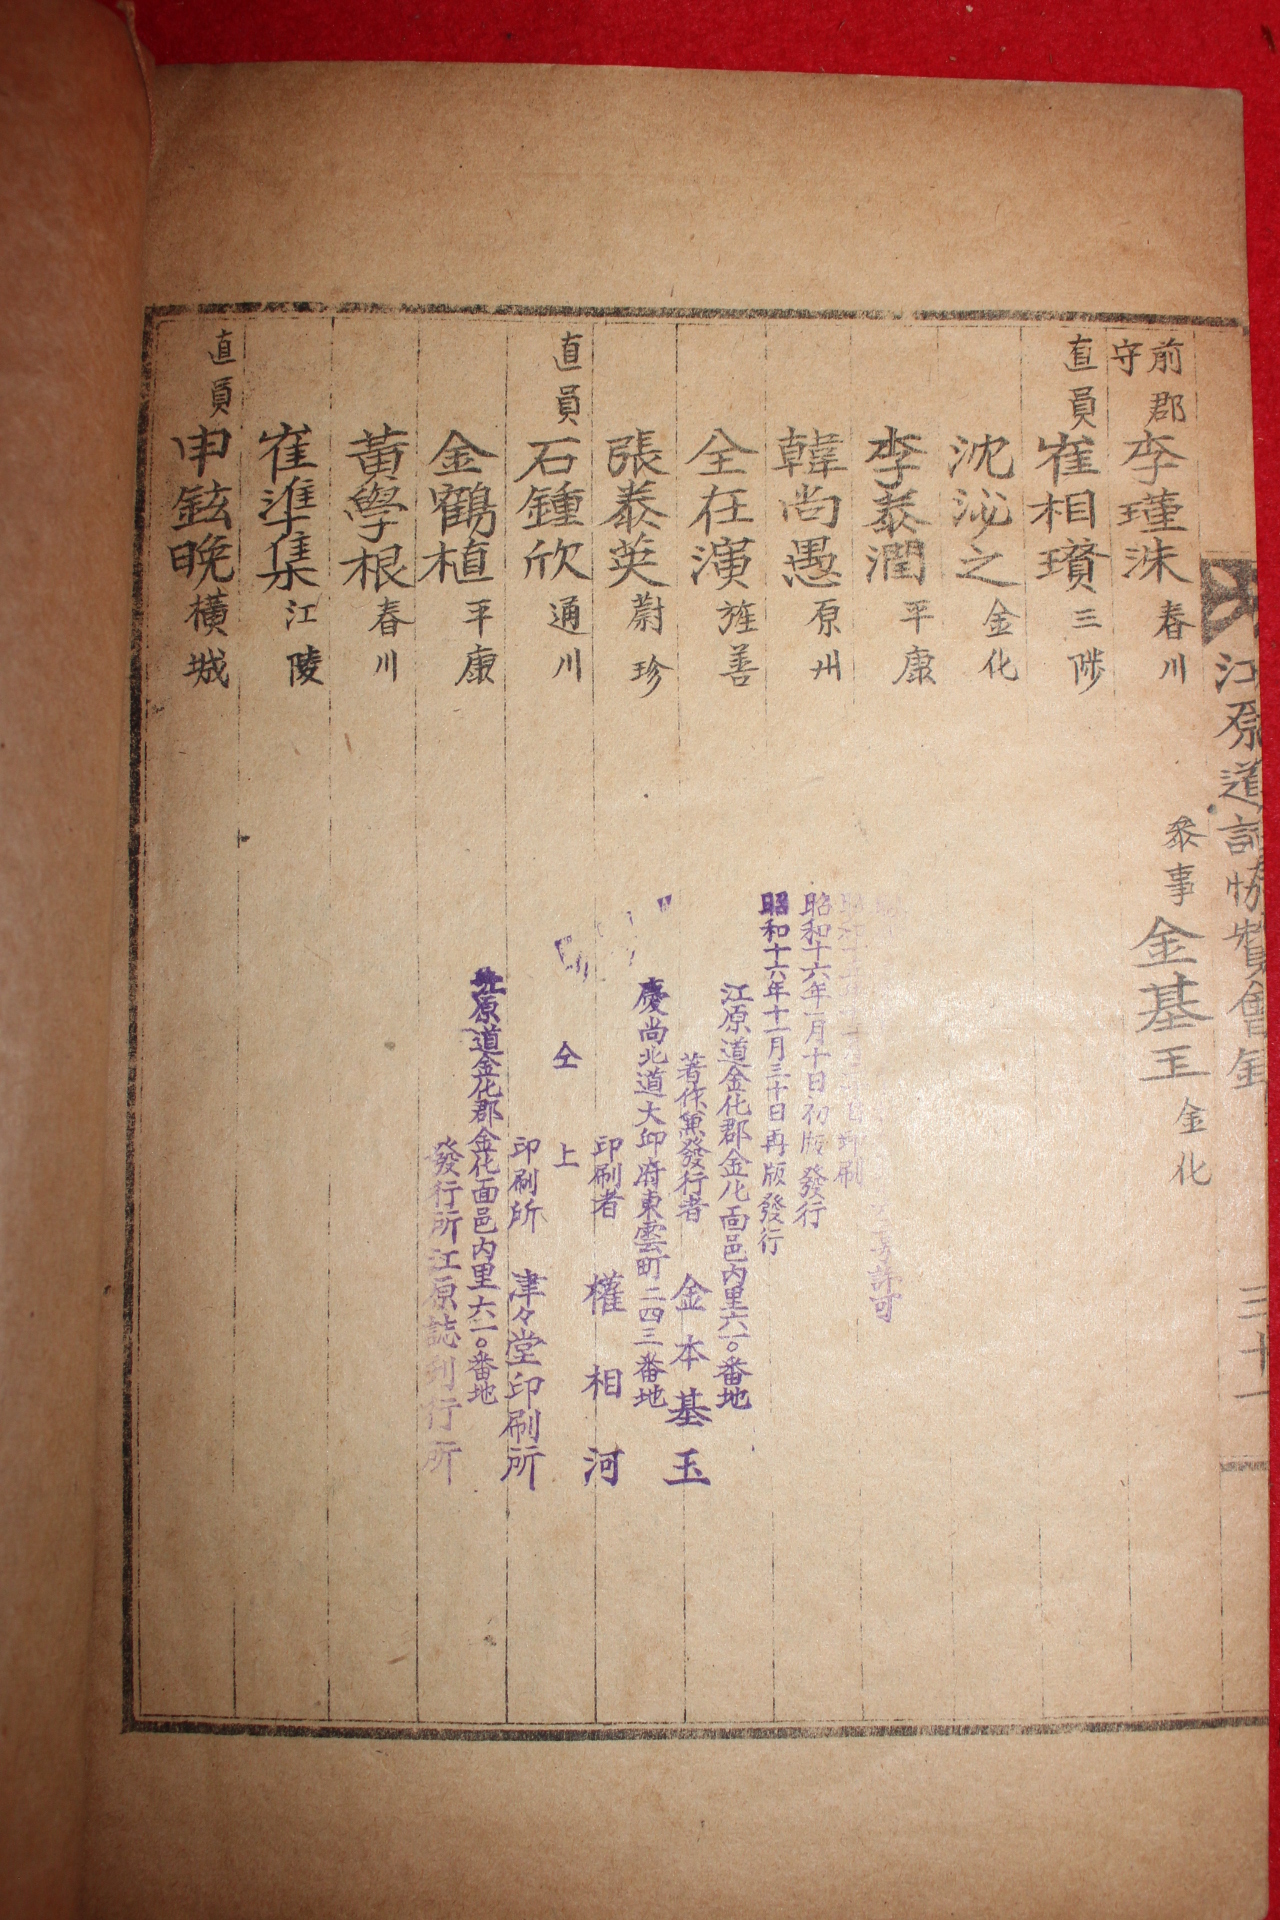 江原道誌協賛會錄
三十一
前郡守 李瑾洙 春川
參事 金基玉 金化
直員 崔相瓚 三陟
沈泌之 金化
李泰潤 平康
韓尚愚 原州
全在演 旌善
張泰英 蔚珍
直員 石鍾欣 通川
金鶴植 平康
黃學根 春川
崔準集 江陵
直員 申鉉晩 橫城
許可
印刷
昭和十六年一月十日初版發行
昭和十六年十一月三十日再版發行
江原道金化郡金化面邑内里六一〇番地
著作兼發行者 金本基玉
慶尚北道大邱府東雲町二四三番地
印刷者 權相河
仝上
印刷所 津々堂印刷所
江原道金化郡金化面邑内里六一〇番地
發行所江原誌刊行所